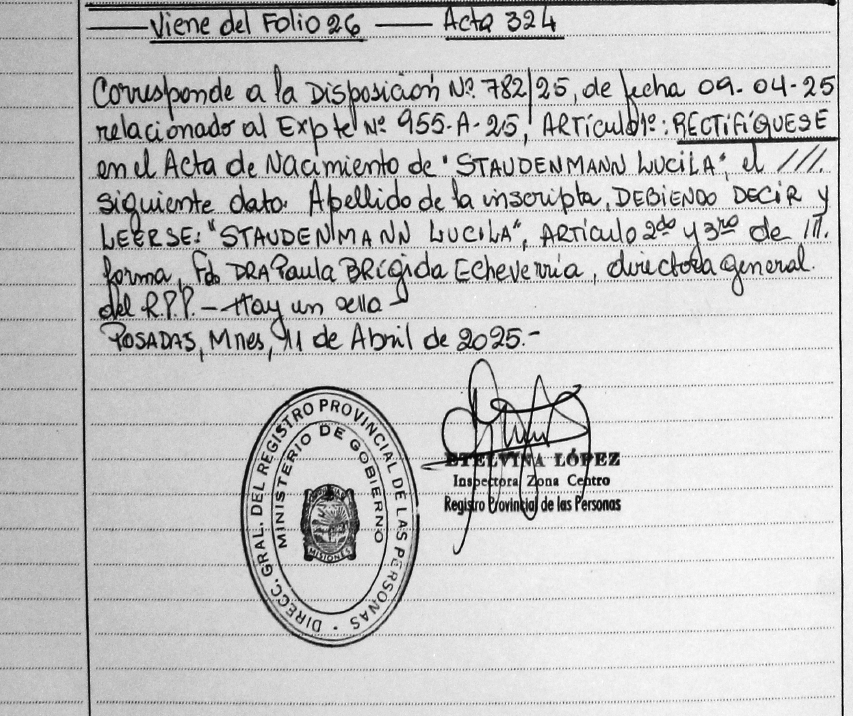 Viene del Folio 26 — Acta 324
Corresponde a la Disposición Nº 782/25, de fecha 09-04-25
relacionado al Expte Nº 955-A-25, ARTículo 1º: RECTIFÍQUESE
en el Acta de Nacimiento de "STAUDENMANN LUCILA", el ///.
siguiente dato: Apellido de la inscripta, DEBIENDO DECIR y
LEERSE: "STAUDENMANN LUCILA", ARTículo 2do y 3ro de ///.
forma, Fdo DRA Paula BRígida Echeverría, directora general.
del R.P.P. - Hay un sello
POSADAS, Mnes, 11 de Abril de 2025.-
DIRECC. GRAL. DEL REGISTRO PROVINCIAL DE LAS PERSONAS -
MINISTERIO DE GOBIERNO
MISIONES
ETELVINA LÓPEZ
Inspectora Zona Centro
Registro Provincial de las Personas